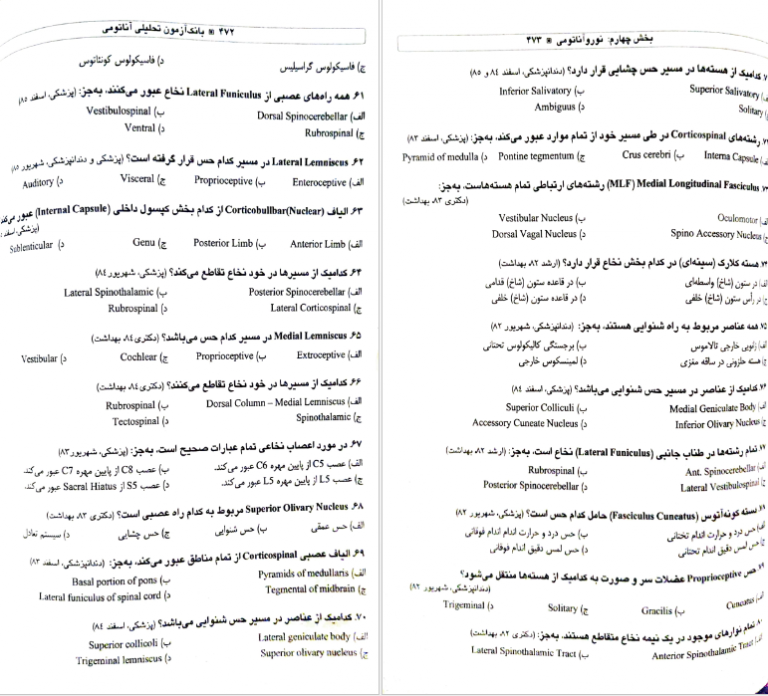 ۴۷۲ * بانک آزمون تحلیلی آناتومی
ج) فاسیکولوس گراسیلیس د) فاسیکولوس کونتاتوس
۶۱. همه راه‌های عصبی از Lateral Funiculus نخاع عبور می‌کنند، به‌جز: (پزشکی، اسفند ۸۵)
الف) Dorsal Spinocerebellar ب) Vestibulospinal
ج) Rubrospinal د) Ventral
۶۲. Lateral Lemniscus در مسیر کدام حس قرار گرفته است؟ (پزشکی و دندانپزشکی، شهریور ۸۵)
الف) Enteroceptive ب) Proprioceptive ج) Visceral د) Auditory
۶۳. الیاف Corticobullbar(Nuclear) از کدام بخش کپسول داخلی (Internal Capsule) عبور می‌کند
(پزشکی، اسفند
الف) Anterior Limb ب) Posterior Limb ج) Genu د) Sublenticular
۶۴. کدامیک از مسیرها در خود نخاع تقاطع می‌کند؟ (پزشکی، شهریور ۸۴)
الف) Posterior Spinocerebellar ب) Lateral Spinothalamic
ج) Lateral Corticospinal د) Rubrospinal
۶۵. Medial Lemniscus در مسیر کدام حس می‌باشد؟ (دکتری ۸۴، بهداشت)
الف) Extroceptive ب) Proprioceptive ج) Cochlear د) Vestibular
۶۶. کدامیک از مسیرها در خود نخاع تقاطع می‌کنند؟ (دکتری ۸۴، بهداشت)
الف) Dorsal Column – Medial Lemniscus ب) Rubrospinal
ج) Spinothalamic د) Tectospinal
۶۷. در مورد اعصاب نخاعی تمام عبارات صحیح است، به‌جز: (پزشکی، شهریور ۸۳)
الف) عصب C5 از پایین مهره C6 عبور می‌کند. ب) عصب C8 از پایین مهره C7 عبور می‌کند.
ج) عصب L5 از پایین مهره L5 عبور می‌کند. د) عصب S5 از Sacral Hiatus عبور می‌کند.
۶۸. Superior Olivary Nucleus مربوط به کدام راه عصبی است؟ (دکتری ۸۳، بهداشت)
الف) حس عمقی ب) حس شنوایی ج) حس چشایی د) سیستم تعادل
۶۹. الیاف عصبی Corticospinal از تمام مناطق عبور می‌کند، به‌جز: (دندانپزشکی، اسفند ۸۳)
الف) Pyramids of medullaris ب) Basal portion of pons
ج) Tegmental of midbrain د) Lateral funiculus of spinal cord
۷۰. کدامیک از عناصر در مسیر حس شنوایی می‌باشد؟ (پزشکی، اسفند ۸۴)
الف) Lateral geniculate body ب) Superior collicoli
ج) Superior olivary nucleus د) Trigeminal lemniscus
بخش چهارم: نوروآناتومی * ۴۷۳
کدامیک از هسته‌ها در مسیر حس چشایی قرار دارد؟ (دندانپزشکی، اسفند ۸۴ و ۸۵)
Superior Salivatory ب) Inferior Salivatory
Solitary د) Ambiguus
رشته‌های Corticospinal در طی مسیر خود از تمام موارد عبور می‌کند، به‌جز: (پزشکی، اسفند ۸۳)
Interna Capsule ب) Crus cerebri ج) Pontine tegmentum د) Pyramid of medulla
Medial Longitudinal Fasciculus (MLF) رشته‌های ارتباطی تمام هسته‌هاست، به‌جز:
(دکتری ۸۳، بهداشت)
Oculomotor ب) Vestibular Nucleus
Spino Accessory Nucleus د) Dorsal Vagal Nucleus
هسته کلارک (سینه‌ای) در کدام بخش نخاع قرار دارد؟ (ارشد ۸۲، بهداشت)
الف) در ستون (شاخ) واسطه‌ای ب) در قاعده ستون (شاخ) قدامی
ج) در رأس ستون (شاخ) خلفی د) در قاعده ستون (شاخ) خلفی
۷۵. همه عناصر مربوط به راه شنوایی هستند، به‌جز: (دندانپزشکی، شهریور ۸۲)
الف) زانویی خارجی تالاموس ب) برجستگی کالیکولوس تحتانی
ج) هسته حلزونی در ساقه مغزی د) لمینسکوس خارجی
۷۶. کدامیک از عناصر در مسیر حس شنوایی می‌باشد؟ (پزشکی، اسفند ۸۴)
الف) Medial Geniculate Body ب) Superior Colliculi
ج) Inferior Olivary Nucleus د) Accessory Cuneate Nucleus
تمام رشته‌ها در طناب جانبی (Lateral Funiculus) نخاع است، به‌جز: (ارشد ۸۲، بهداشت)
Ant. Spinocerebellar ب) Rubrospinal
Lateral Vestibulospinal د) Posterior Spinocerebellar
دسته کونه‌آتوس (Fasciculus Cuneatus) حامل کدام حس است؟ (پزشکی، شهریور ۸۲)
الف) حس درد و حرارت اندام تحتانی ب) حس درد و حرارت اندام اندام فوقانی
ج) حس لمس دقیق اندام تحتانی د) حس لمس دقیق اندام فوقانی
حس Proprioceptive عضلات سر و صورت به کدامیک از هسته‌ها منتقل می‌شود؟
(دندانپزشکی، شهریور ۸۲)
Cuneatus ب) Gracilis ج) Solitary د) Trigeminal
تمام نوارهای موجود در یک نیمه نخاع متقاطع هستند، به‌جز: (دکتری ۸۲، بهداشت)
Anterior Spinothalamic Tract ب) Lateral Spinothalamic Tract